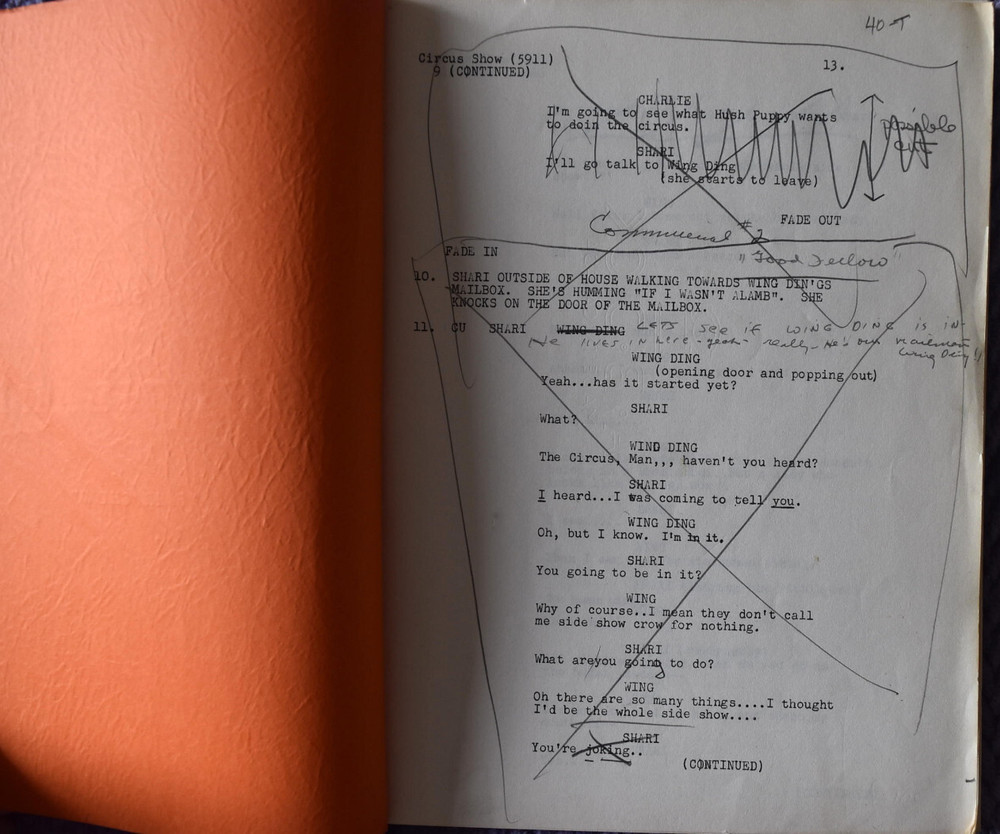 40-T
Circus Show (5911)
9 (CONTINUED)
13.
CHARLIE
I'm going to see what Hush Puppy wants
to doin the circus.
possible
cut
SHARI
I'll go talk to Wing Ding
(she starts to leave)
FADE OUT
Commercial #2
"Good Fellow"
FADE IN
10. SHARI OUTSIDE OF HOUSE WALKING TOWARDS WING DIN'GS
MAILBOX. SHE'S HUMMING "IF I WASN'T ALAMB". SHE
KNOCKS ON THE DOOR OF THE MAILBOX.
11. CU SHARI WING DING LETS SEE IF WING DING IS IN-
He LIVES IN here - yeah - really - He's our mailman
Wing Ding!!
WING DING
(opening door and popping out)
Yeah...has it started yet?
SHARI
What?
WING DING
The Circus, Man,,, haven't you heard?
SHARI
I heard...I was coming to tell you.
WING DING
Oh, but I know. I'm in it.
SHARI
You going to be in it?
WING
Why of course..I mean they don't call
me side show crow for nothing.
SHARI
What areyou going to do?
WING
Oh there are so many things....I thought
I'd be the whole side show....
SHARI
You're joking..
(CONTINUED)